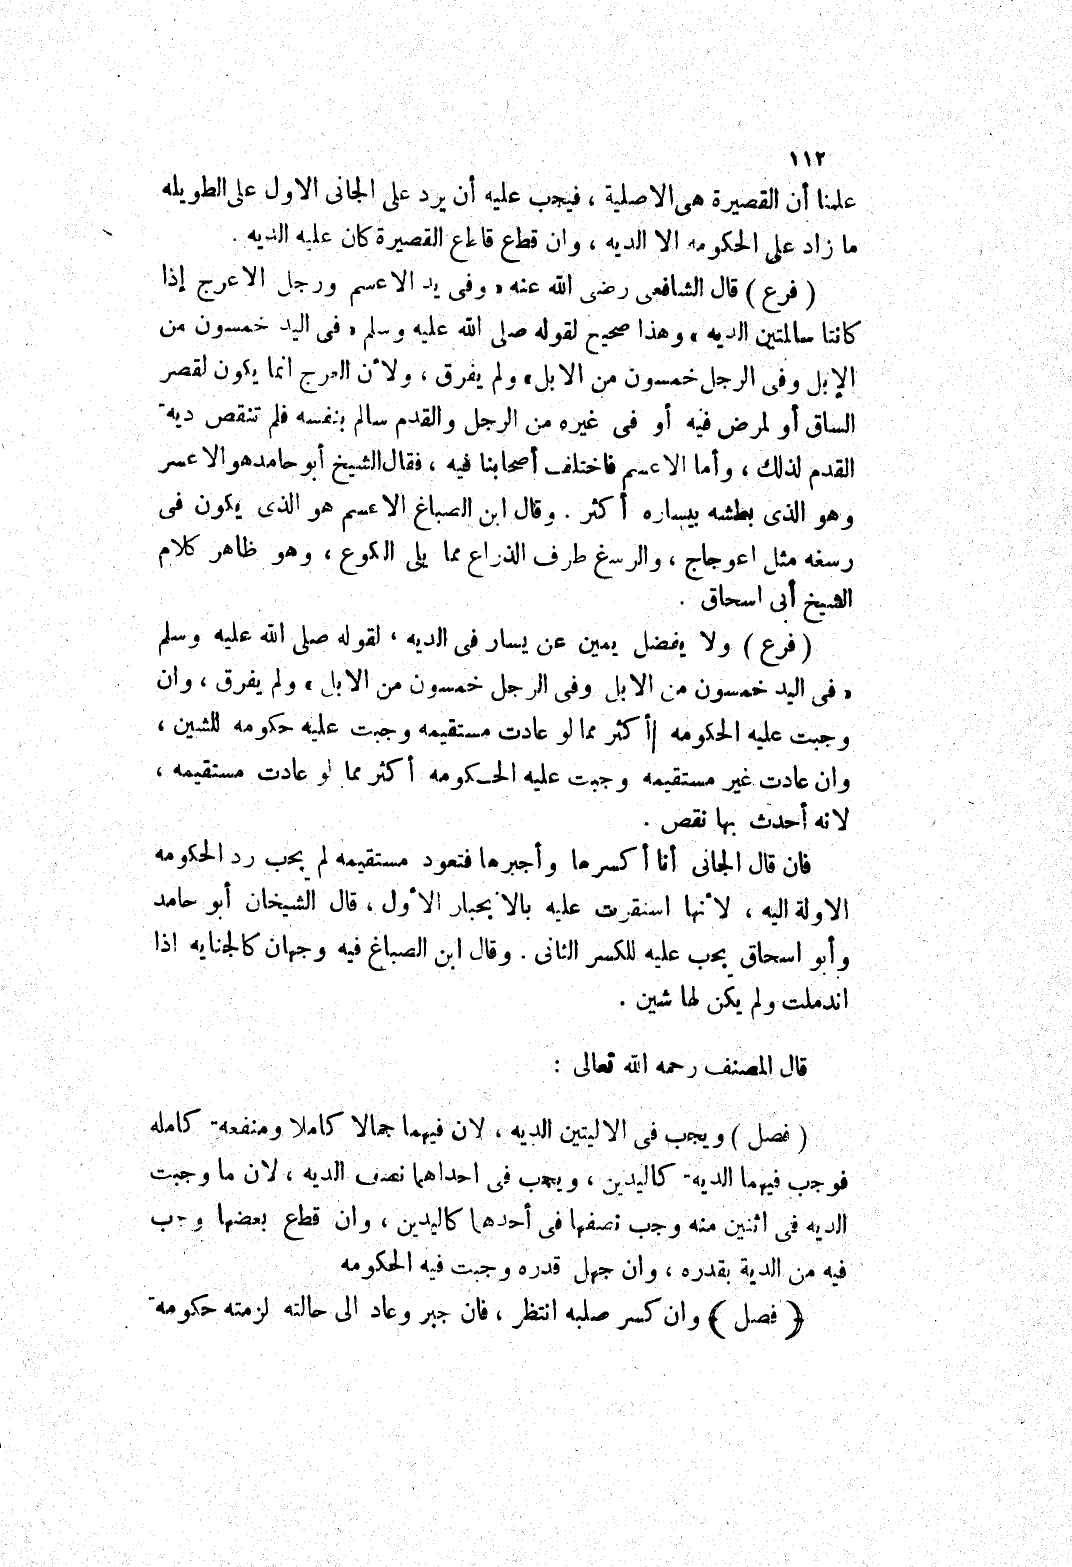 ١١٢
علمنا أن القصيرة هى الاصلية ، فيجب عليه أن يرد على الجانى الاول على الطويله
ما زاد على الحكومه الا الديه ، وان قطع قاطع القصيرة كان عليه الديه .
( فرع ) قال الشافعى رضى الله عنه « وفى يد الاعسم ورجل الاعرج إذا
كانتا سالمتين الديه » وهذا صحيح لقوله صلى الله عليه وسلم « فى اليد خمسون من
الإبل وفى الرجل خمسون من الابل» ولم يفرق ، ولأن العرج انما يكون لقصر
الساق أو لمرض فيه أو فى غيره من الرجل والقدم سالم بنفسه فلم تنقص ديه
القدم لذلك ، وأما الاعسم فاختلف أصحابنا فيه ، فقال الشيخ أبو حامد هو الاعسر
وهو الذى بطشه بيساره أكثر . وقال ابن الصباغ الاعسم هو الذى يكون فى
رسغه مثل اعوجاج ، والرسغ طرف الذراع مما يلى الكوع ، وهو ظاهر كلام
الشيخ أبى اسحاق .
( فرع ) ولا يفضل يمين عن يسار فى الديه ، لقوله صلى الله عليه وسلم
« فى اليد خمسون من الابل وفى الرجل خمسون من الابل » ولم يفرق ، وان
وجبت عليه الحكومه أكثر مما لو عادت مستقيمه وجبت عليه حكومه للشين ،
وان عادت غير مستقيمه وجبت عليه الحكومه أكثر مما لو عادت مستقيمه ،
لانه أحدث بها نقص .
فان قال الجانى أنا أكسرها وأجبرها فتعود مستقيمه لم يجب رد الحكومه
الاولة اليه ، لأنها استقرت عليه بالانجبار الأول ، قال الشيخان أبو حامد
وأبو اسحاق يجب عليه للكسر الثانى . وقال ابن الصباغ فيه وجهان كالجنايه اذا
اندملت ولم يكن لها شين .
قال المصنف رحمه الله تعالى :
( فصل ) ويجب فى الاليتين الديه ، لان فيهما جمالا كاملا ومنفعه كامله
فوجب فيهما الديه كاليدين ، ويجب فى احداهما نصف الديه ، لان ما وجبت
الديه فى اثنين منه وجب نصفها فى أحدهما كاليدين ، وان قطع بعضها وجب
فيه من الدية بقدره ، وان جهل قدره وجبت فيه الحكومه
( فصل ) وان كسر صلبه انتظر ، فان جبر وعاد الى حالته لزمته حكومه